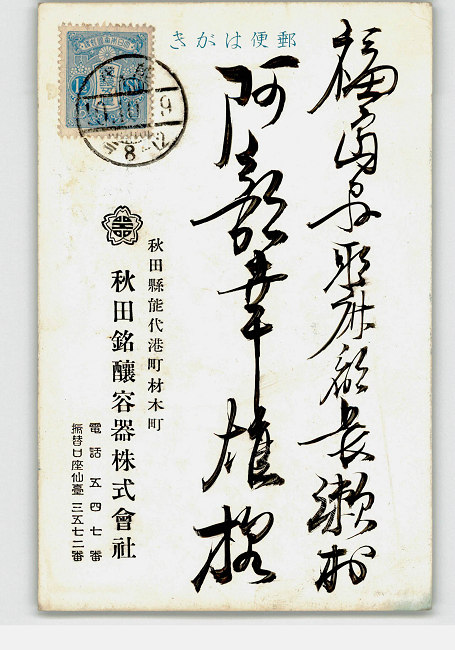 郵便はがき
福島県耶麻郡長瀬村
阿 雄様
秋田縣能代港町材木町
秋田銘釀容器株式會社
電話 五四七番
振替口座仙臺 三五七二番